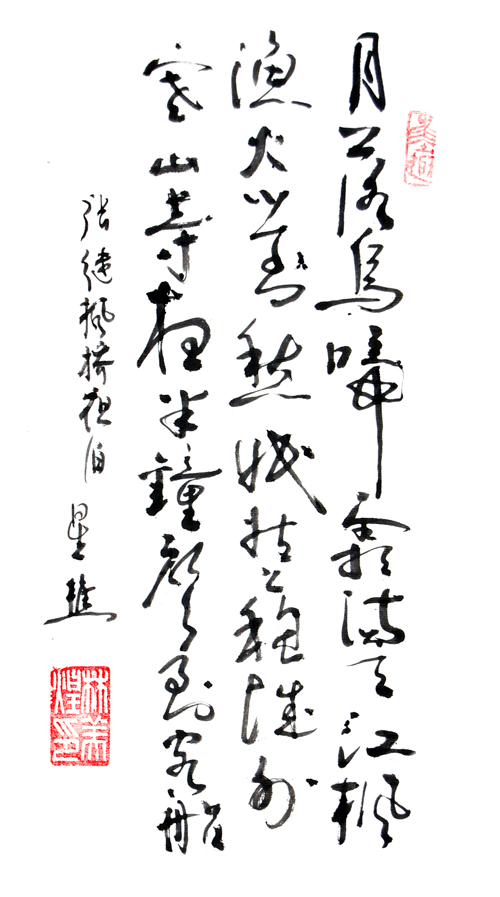 月落烏啼霜滿天江楓
漁火對愁眠姑蘇城外
寒山寺夜半鐘聲到客船
張繼楓橋夜泊 星樵